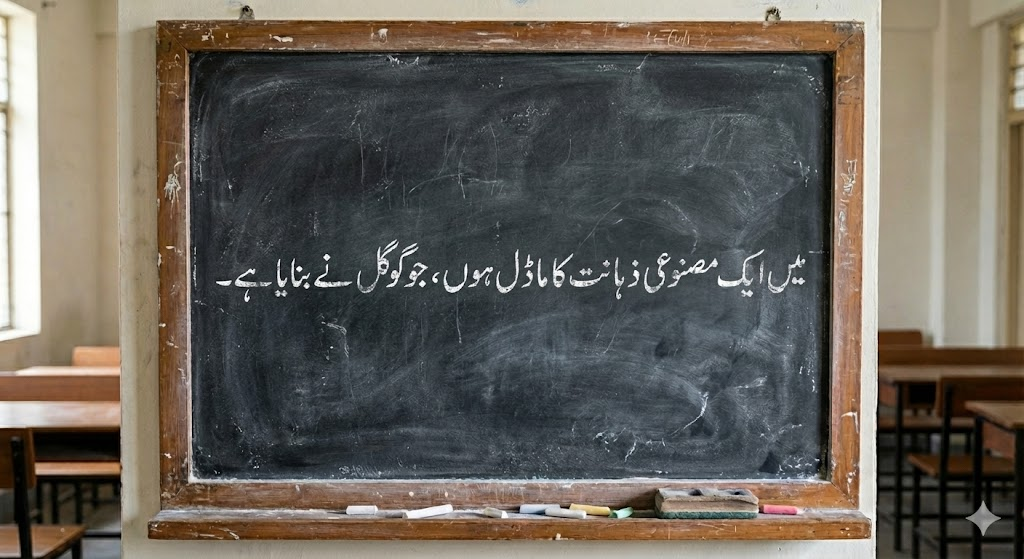 میں ایک مصنوعی ذہانت کا ماڈل ہوں، جو گوگل نے بنایا ہے۔